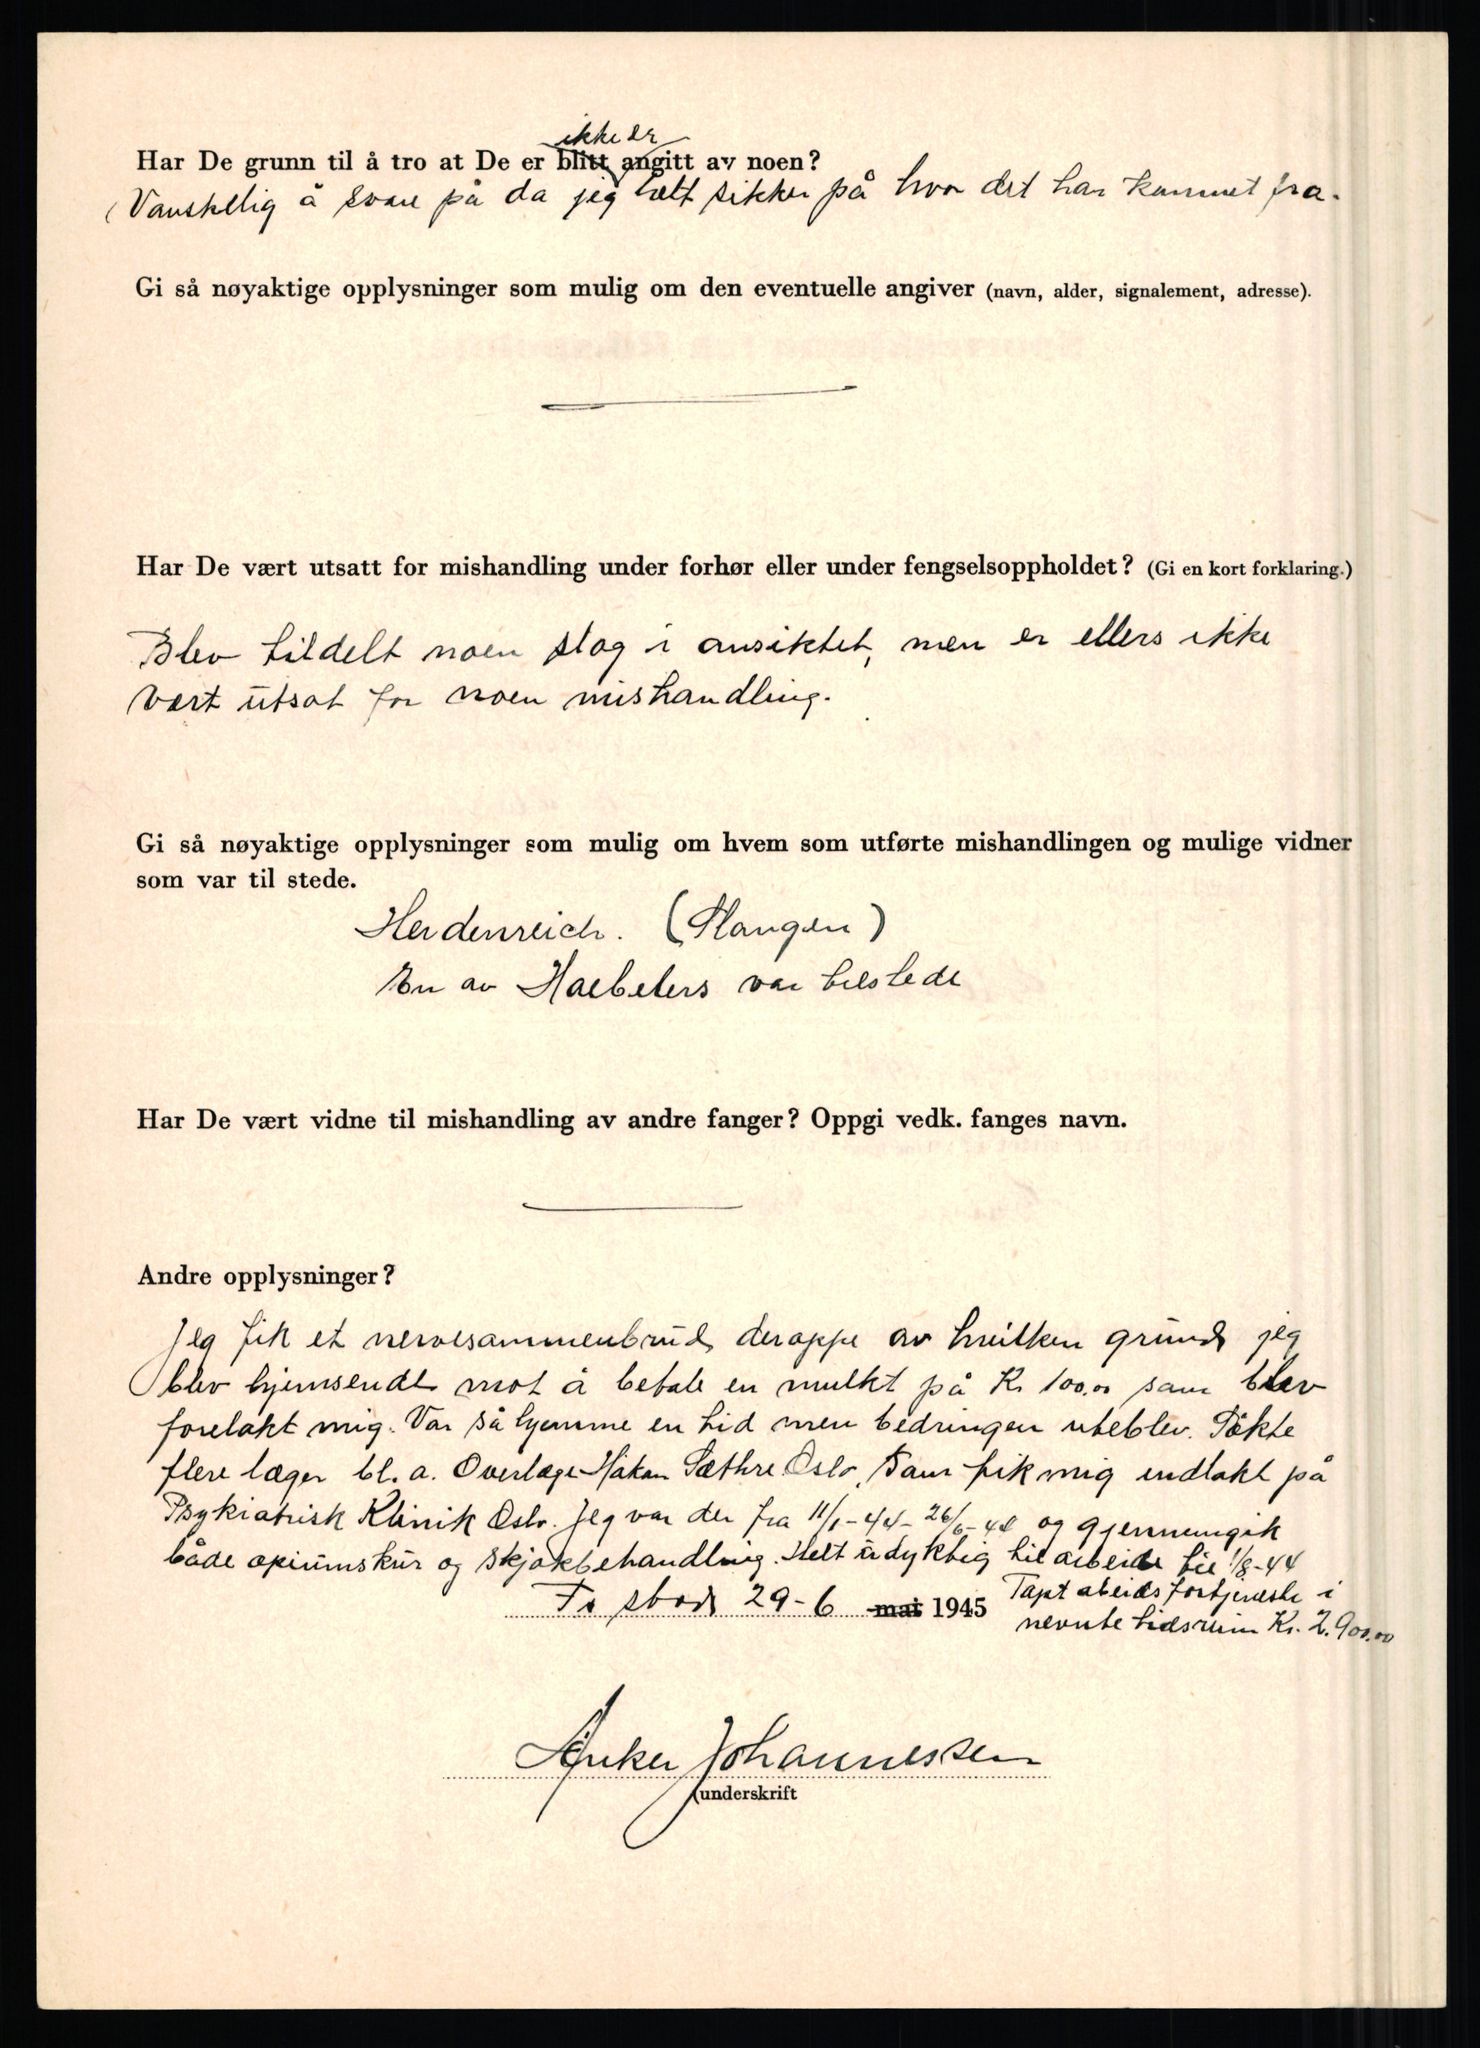 Har De grunn til å tro at De er blitt angitt av noen?
ikke er
Vanskelig å svare på da jeg helt sikker på hvor det har kommet fra.
Gi så nøyaktige opplysninger som mulig om den eventuelle angiver (navn, alder, signalement, adresse).
Har De vært utsatt for mishandling under forhør eller under fengselsoppholdet? (Gi en kort forklaring.)
Blev tildelt noen slag i ansiktet, men er ellers ikke
vært utsat for noen mishandling.
Gi så nøyaktige opplysninger som mulig om hvem som utførte mishandlingen og mulige vidner
som var til stede.
Heidenreich. (Stangen)
En av Haebelers var tilstede
Har De vært vidne til mishandling av andre fanger? Oppgi vedk. fanges navn.
Andre opplysninger?
Jeg fik et nervesammenbrud deroppe av hvilken grund jeg
blev hjemsendt mot å betale en mulkt på Kr 100.00 som blev
forelakt mig. Var så hjemme en tid men bedringen uteblev. Søkte
flere læger bl. a. Overlæge Håkon Sæthre Oslo, som fik mig indlakt på
Psykiatrisk Klinik Oslo. Jeg var der fra 11/1-44 - 26/6-44 og gjennemgik
både opiumskur og skjokbehandling. Helt udyktig til arbeide til 1/8-44
Tapt abeidsfortjeneste i
nevnte tidsrum Kr. 2.900.00
Fr.stad 29-6 mai 1945
Anker Johannessen
(underskrift